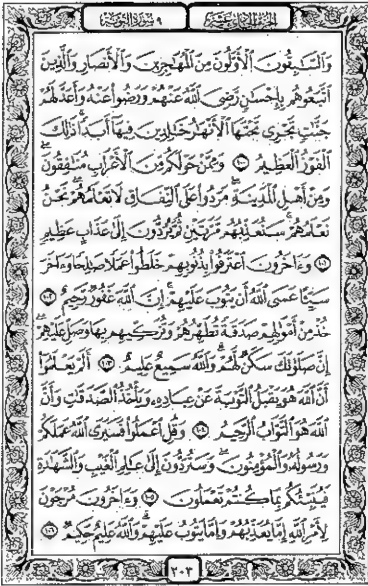 الجزء الحادي عشر ٩ سورة التوبة
وَٱلسَّـٰبِقُونَ ٱلْأَوَّلُونَ مِنَ ٱلْمُهَـٰجِرِينَ وَٱلْأَنصَارِ وَٱلَّذِينَ
ٱتَّبَعُوهُم بِإِحْسَـٰنٍ رَّضِىَ ٱللَّهُ عَنْهُمْ وَرَضُوا۟ عَنْهُ وَأَعَدَّ لَهُمْ
جَنَّـٰتٍ تَجْرِى تَحْتَهَا ٱلْأَنْهَـٰرُ خَـٰلِدِينَ فِيهَآ أَبَدًا ۚ ذَٰلِكَ
ٱلْفَوْزُ ٱلْعَظِيمُ ١٠٠ وَمِمَّنْ حَوْلَكُم مِّنَ ٱلْأَعْرَابِ مُنَـٰفِقُونَ ۖ
وَمِنْ أَهْلِ ٱلْمَدِينَةِ ۖ مَرَدُوا۟ عَلَى ٱلنِّفَاقِ لَا تَعْلَمُهُمْ ۖ نَحْنُ
نَعْلَمُهُمْ ۚ سَنُعَذِّبُهُم مَّرَّتَيْنِ ثُمَّ يُرَدُّونَ إِلَىٰ عَذَابٍ عَظِيمٍ
١٠١ وَءَاخَرُونَ ٱعْتَرَفُوا۟ بِذُنُوبِهِمْ خَلَطُوا۟ عَمَلًا صَـٰلِحًا وَءَاخَرَ
سَيِّئًا عَسَى ٱللَّهُ أَن يَتُوبَ عَلَيْهِمْ ۚ إِنَّ ٱللَّهَ غَفُورٌ رَّحِيمٌ ١٠٢
خُذْ مِنْ أَمْوَٰلِهِمْ صَدَقَةً تُطَهِّرُهُمْ وَتُزَكِّيهِم بِهَا وَصَلِّ عَلَيْهِمْ ۖ
إِنَّ صَلَوٰتَكَ سَكَنٌ لَّهُمْ ۗ وَٱللَّهُ سَمِيعٌ عَلِيمٌ ١٠٣ أَلَمْ يَعْلَمُوٓا۟
أَنَّ ٱللَّهَ هُوَ يَقْبَلُ ٱلتَّوْبَةَ عَنْ عِبَادِهِۦ وَيَأْخُذُ ٱلصَّدَقَـٰتِ وَأَنَّ
ٱللَّهَ هُوَ ٱلتَّوَّابُ ٱلرَّحِيمُ ١٠٤ وَقُلِ ٱعْمَلُوا۟ فَسَيَرَى ٱللَّهُ عَمَلَكُمْ
وَرَسُولُهُۥ وَٱلْمُؤْمِنُونَ ۖ وَسَتُرَدُّونَ إِلَىٰ عَـٰلِمِ ٱلْغَيْبِ وَٱلشَّهَـٰدَةِ
فَيُنَبِّئُكُم بِمَا كُنتُمْ تَعْمَلُونَ ١٠٥ وَءَاخَرُونَ مُرْجَوْنَ
لِأَمْرِ ٱللَّهِ إِمَّا يُعَذِّبُهُمْ وَإِمَّا يَتُوبُ عَلَيْهِمْ ۗ وَٱللَّهُ عَلِيمٌ حَكِيمٌ ١٠٦
٢٠٣